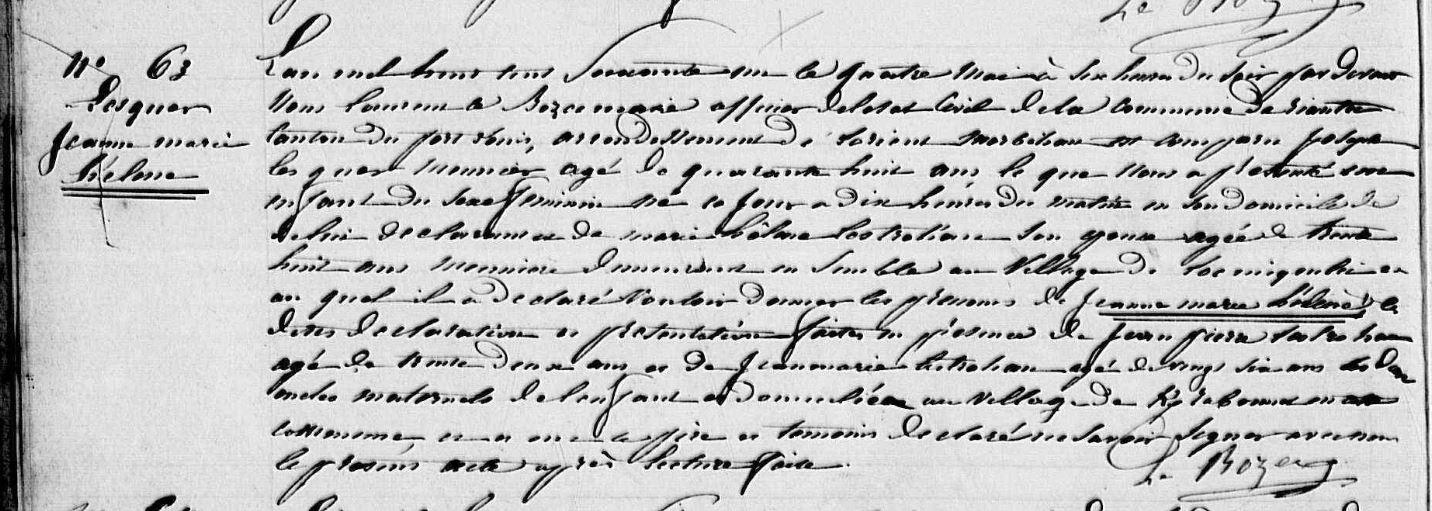 Le Bozec
N° 63
Lesquer
Jeanne marie
hélène
L'an mil huit cent Soixante un le quatre Mai à Six heures du Soir par devant
Nous Laurent Le Bozec maire officier de l'etat Civil de la commune de riantec
Canton du port Louis, arrondissement de Lorient morbihan est comparu joseph
les quer meunier agé de quarante huit ans le quel Nous a présenté une
enfant du Sexe feminin né ce jour a dix heures du matin en Son domicile de
de lui declarant et de marie hélène Lestrohan Son epouse agée de trente
huit ans meunière demeurant en Semble au Village de Locmiquelic en
au quel il a declaré Vouloir donner les prenoms de Jeanne marie hélène; les
dites declaration et présentation faites en présence de jean pierre Lestrohan
agé de trente deux ans et de Jean marie Lestrohan agé de vingt Six ans les deux
oncles maternels de l'enfant et domiciliés au Village de en
commune, et ont le père et temoins declaré ne Savoir Signer avec nous
le présent acte après lecture faite.
Le Bozec